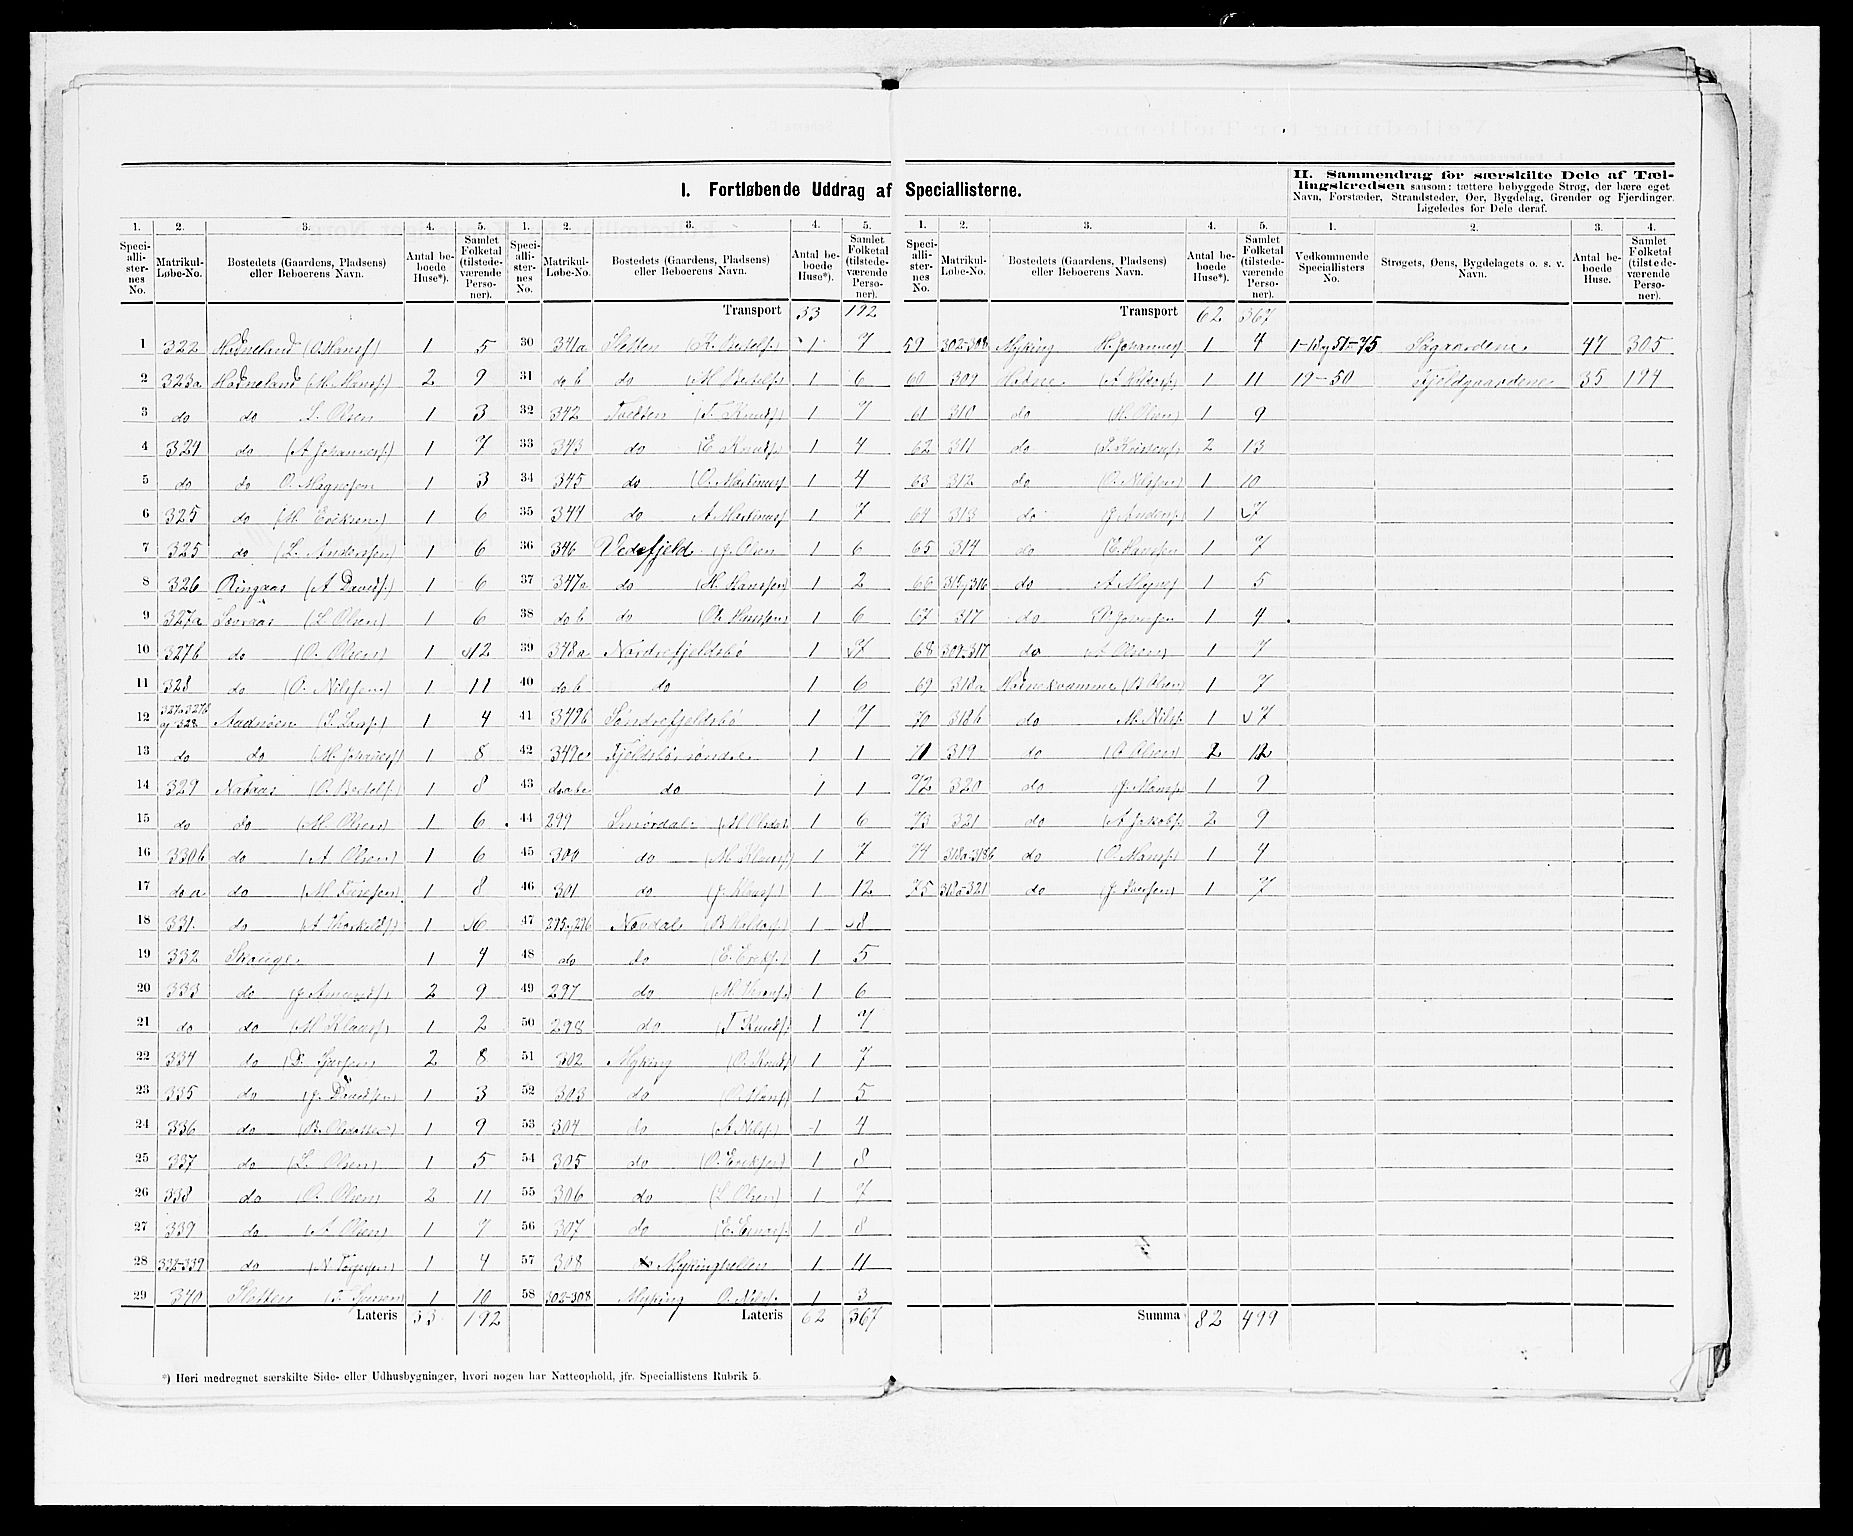 I. Fortløbende Uddrag af Speciallisterne.
II. Sammendrag for særskilte Dele af Tællingskredsen saasom: tættere bebyggede Strøg, der bære eget Navn, Forstæder, Strandsteder, Øer, Bygdelag, Grender og Fjerdinger. Ligeledes for Dele deraf.
1. 2. 3. 4. 5. 1. 2. 3. 4. 5. 1. 2. 3. 4. 5. 1. 2. 3. 4.
Speciallisternes No. Matrikul-Løbe-No. Bostedets (Gaardens, Pladsens) eller Beboerens Navn. Antal beboede Huse*). Samlet Folketal (tilstedeværende Personer).
Speciallisternes No. Matrikul-Løbe-No. Bostedets (Gaardens, Pladsens) eller Beboerens Navn. Antal beboede Huse*). Samlet Folketal (tilstedeværende Personer).
Speciallisternes No. Matrikul-Løbe-No. Bostedets (Gaardens, Pladsens) eller Beboerens Navn. Antal beboede Huse*). Samlet Folketal (tilstedeværende Personer).
Vedkommende Speciallisters No. Strøgets, Øens, Bygdelagets o. s. v. Navn. Antal beboede Huse. Samlet Folketal (tilstedeværende Personer).
1 322 Hodneland (O Hansf) 1 5
2 323a Hodneland (M. Hansf) 2 9
3 do do L. Olsen 1 3
4 324 do (A Johannesf.) 1 7
5 do do O. Magnesen 1 3
6 325 do (M. Eriksen) 1 6
7 325 do (L. Andersen) 1 6
8 326 Ringaas (A Davidsf.) 1 6
9 327a (L Olsen) 1 6
10 327b do (O. Olsen) 1 12
11 328 do (O. Nilssen) 1 11
12 327a327b og 328 (L. Larsf.) 1 4
13 do do 1 8
14 329 Nataas (O Bertelsf.) 1 8
15 do do (M. Olsen) 1 6
16 330b do (A Olsen) 1 6
17 do a do (M 1 8
18 331. do (A Thorkelds) 1 6
19 332 Skauge 1 4
20 333 do (J Amunds) 2 9
21 do do (M Klausf) 1 2
22 334 do 2 8
23 335 do (J. Davidsen) 1 3
24 336 do (B. Olsdatter) 1 9
25 337 do (L. Olsen) 1 5
26 338 do (O. Olsen) 2 11
27 339 do (A Olsen) 1 7
28 332-339 do 1 4
29 340 Sletten 1 10
Lateris 33 192
Transport 33 192
30 341a Sletten (K. Bertelsf.) 1 7
31 do b do (M Bertelsf) 1 6
32 342 Tveiten (T. Knudsf) 1 7
33 343 do (E Knudsf) 1 4
34 345 do (O. Martinusf 1 4
35 344 do A Martinusf 1 7
36 346 Vedefjeld J. Olsen 1 6
37 347a do (H. Hanssen) 1 2
38 do b do (O. Hanssen) 1 6
39 348a Nordrefjeldsbö 1 7
40 do b do 1 6
41 349b Söndrefjeldsbö 1 7
42 349c Fjeldsbö söndre 1 1
43 do 1 1
44 299 Smördal (M Olsdat. 1 6
45 300 do (M. Klausf) 1 7
46 301 do (J. Klausf.) 1 12
47 295og296 Nordal 1 8
48 do do (E. Eriksf.) 1 5
49 297 do 1 6
50 298 do (T. Knudsf 1 7
51 302 Myking (O. Knudsf) 1 7
52 303 do (O. Hansf) 1 5
53 304 do (A Nilsf) 1 4
54 305 do (O. Eriksen) 1 8
55 306 do (L Olsen) 1 7
56 307 do 1 8
57 308 Mykinghellen 1 11
58 302-308 Myking O. Nilsf. 1 3
Lateris 62 367
Transport 62 367
59 302-308 Myking H. Johannesf 1 4
60 309 Hodne 1 11
61 310 do (H. Olsen) 1 9
62 311 do 2 13
63 312 do (O. Nilssen) 1 10
64 313 do (J Andersf) 1 7
65 314 do (E Hanssen 1 7
66 315og316 do A Mognesf 1 5
67 317 do 1 4
68 309-317 do (A Olsen) 1 7
69 318a Hodnekvamme (B Olsen) 1 7
70 318b do M. Nilsf. 1 7
71 319 do (O Olsen) 2 12
72 320 do (J. Hansf) 1 9
73 321 do (A Jakobsf) 2 9
74 318a-318b do (O. Hansf) 1 4
75 318a-321 do (J. Iversen) 1 7
Summa 82 499
1-18og51-75 Sagaardene 47 305
19-50 Fjeldgaardene 35 194
*) Heri medregnet særskilte Side- eller Udhusbygninger, hvori nogen har Natteophold, jfr. Speciallistens Rubrik 5.